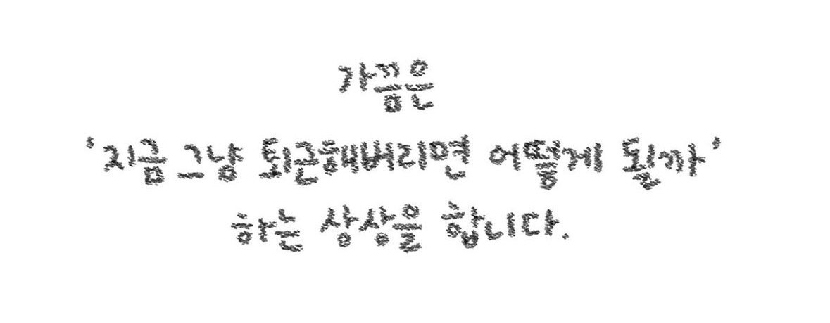 가끔은
'지금 그냥 퇴근해버리면 어떻게 될까'
하는 상상을 합니다.